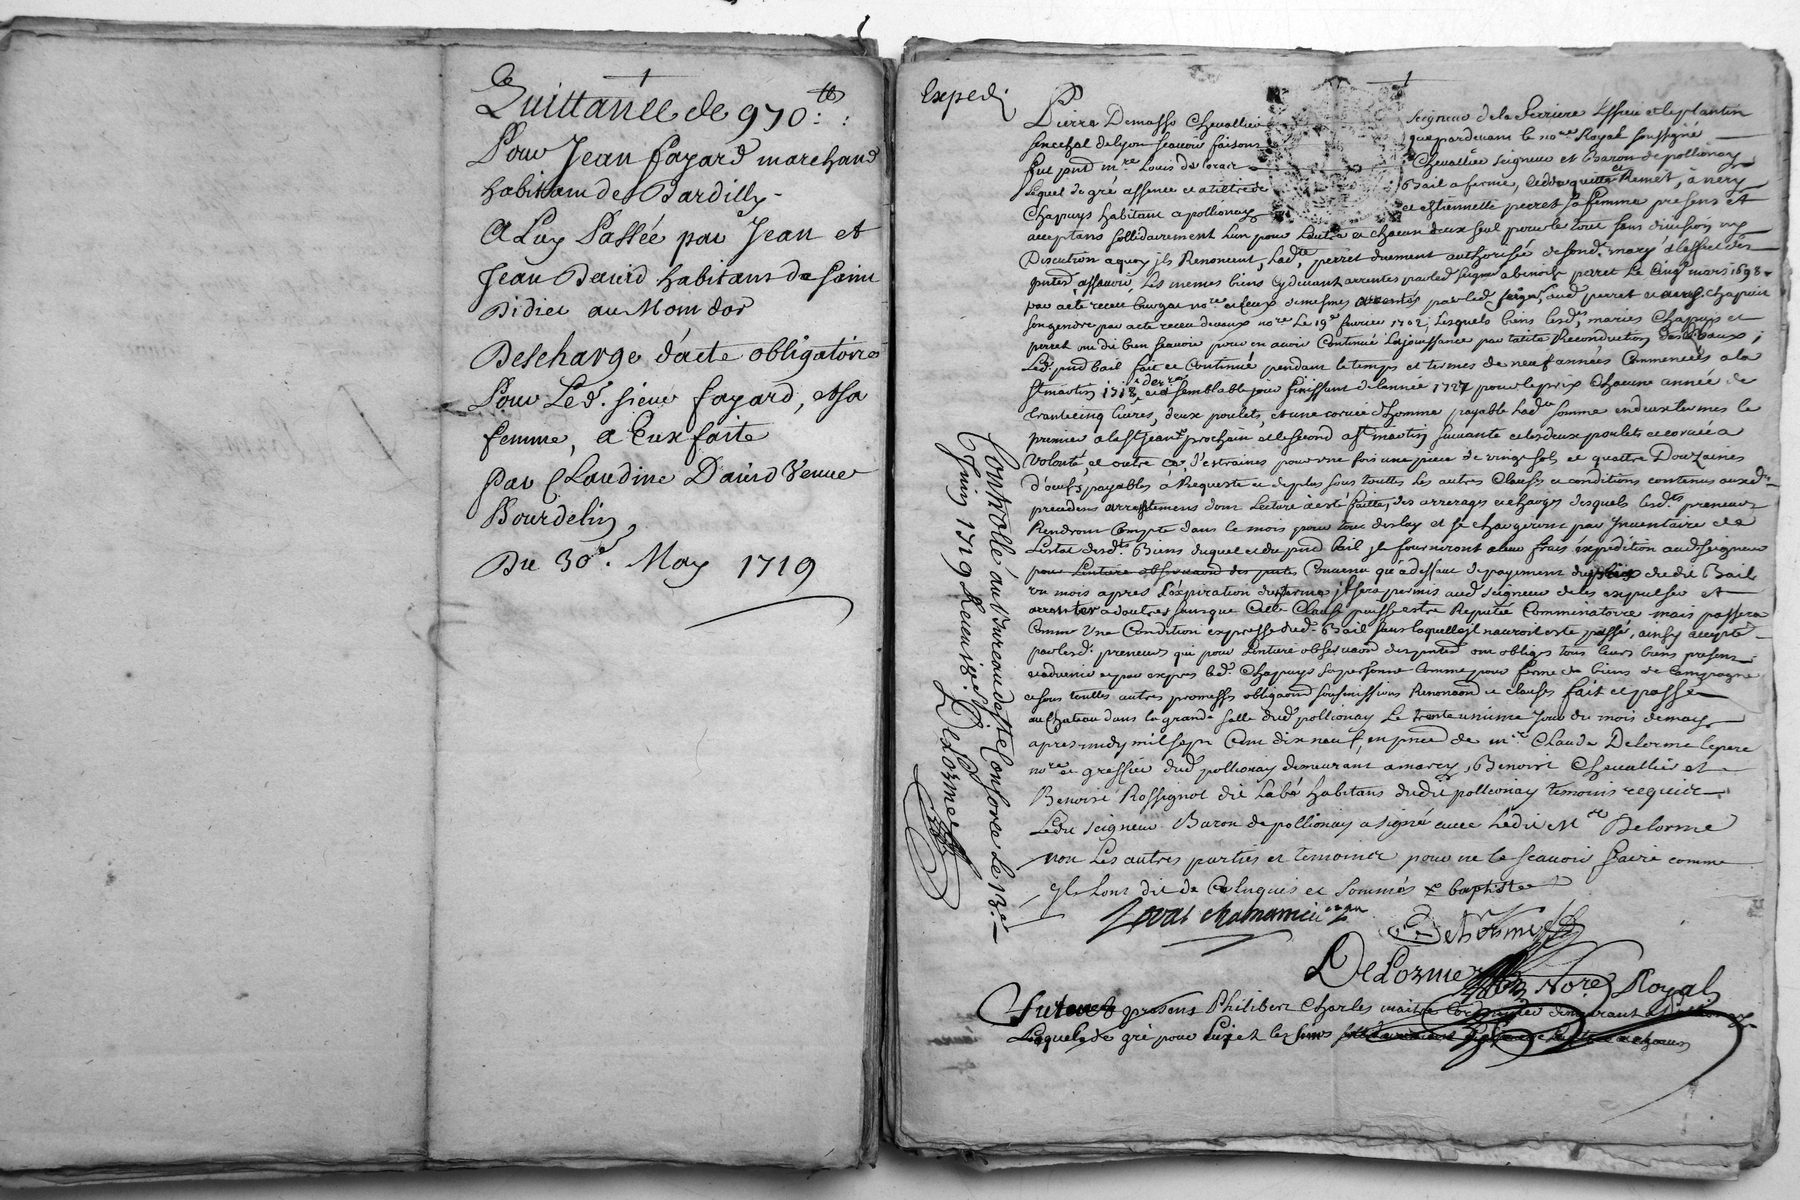 Quittance de 970 ᵗᵗ :
Pour Jean fayard marchand
habitant de Dardilly
A Luy Passée par Jean et
Jean David habitans de saint
Didier au Mont dor
Descharge d'acte obligatoire
Pour Led. sieur fayard, et sa
femme, a Eux faite
Par Claudine David Veuve
Bourdelin
Du 30e. May 1719
Expedi
Pierre Demasso Chevallier seigneur de la ferriere Lissieu et le plantin
senechal de lyon scavoir faisons que pardevant le no.re Royal soussigné
fut pnt m.re Louis de Chevallier seigneur et Baron de pollionay
Lequel de gré a tiltre de Bail a ferme, Remet, a
Chapuys habitant a pollionay et Estiennette perret sa femme presens et
acceptans sollidairement L'un pour L'autre et chacun deux seul pour le tout sans division ny
Discution a quoy ils Renoncent, Lad.te perret duement authorisée de sond. mary a l'effect des
pntes, assavoir, Les memes biens cy devant arrentés par led. seigneur a benoist perret Le cinq.e mars 1698
par acte receu no.re et ceux de mesmes par led. seigneur aud. perret Chapuis
son gendre par acte receu devaux no.re Le 19e fevrier 1702; Lesquels biens lesd. mariés Chapuys et
perret ont dit bien scavoir pour en avoir Continué la jouissance par tacite Reconduction desd. baux;
Led. pnt bail fait et Continué pendant le temps et termes de neuf années Commencées a la
St martin 1718 et a semblable jour finissant de l'année 1727 pour le prix Chacune année de
trante cinq livres, deux poulets, et une corvée d'homme payable Lad.te somme en deux termes le
premier a la St Jean prochain et le second a st martin suivante et les deux poulets et corvée a
Volonté, et outre ce, d'estraines pour une fois une piece de vingt sols et quattre Douzaines
d'oeufs, payables a Requeste et de plus sous touttes les autres Clauses et conditions contenues auxd.
precedens arrentemens dont Lecture a esté faitte, des arrerages et charges desquels lesd.ts preneurs
Rendront Compte dans le mois pour tout deslay et se chargeront par Inventaire de
L'estat desd.ts Biens duquel et du pnt bail ils fourniront a leur frais expedition aud. seigneur
pour L'entiere observaon des pntes Convenu qu'a deffaut de payement du prix dudit Bail
un mois apres L'expiration du terme il sera permis aud. seigneur de les expulser et
arrenter a d'autres sans que Cette Clause puisse estre Reputée Comminatoire mais passera
Comme Une Condition expresse dud. Bail sans laquelle il n'auroit esté passé, ainsy accepté
par lesd. preneurs qui pour L'entiere observaon des pntes ont obligés tous leurs biens presens
et advenir et par exprès led. Chapuys sa personne Comme pour ferme de biens de Campagne
et sous touttes autres promesses obligaons soumissions Renonaons et clauses fait et passé
au Chateau dans la grande salle dud. pollionay Le trente unieme Jour du mois de may
apres midy mil sept Cent dix neuf, en pnce de m.re Claude Delorme le pere
no.re et greffier dud. pollionay demeurant a marcy, Benoist Chevallier et
Benoist Rossignol dit Labé habitans dudit pollionay temoins requis
Ledit seigneur Baron de pollionay a signé avec Ledit M.re Delorme
non Les autres parties et temoins pour ne le scavoir faire comme
ils Lont dit de Ce Enquis et sommés
Delorme
DeLorme No.re Royal
Furent presens Philibert Charles maitre Cordonnier demeurant a
Lesquels de gré pour Luy et les siens
Controllé au Bureau de Ste Consorce Le 13e
Juin 1719 Receu 12s. DeLorme